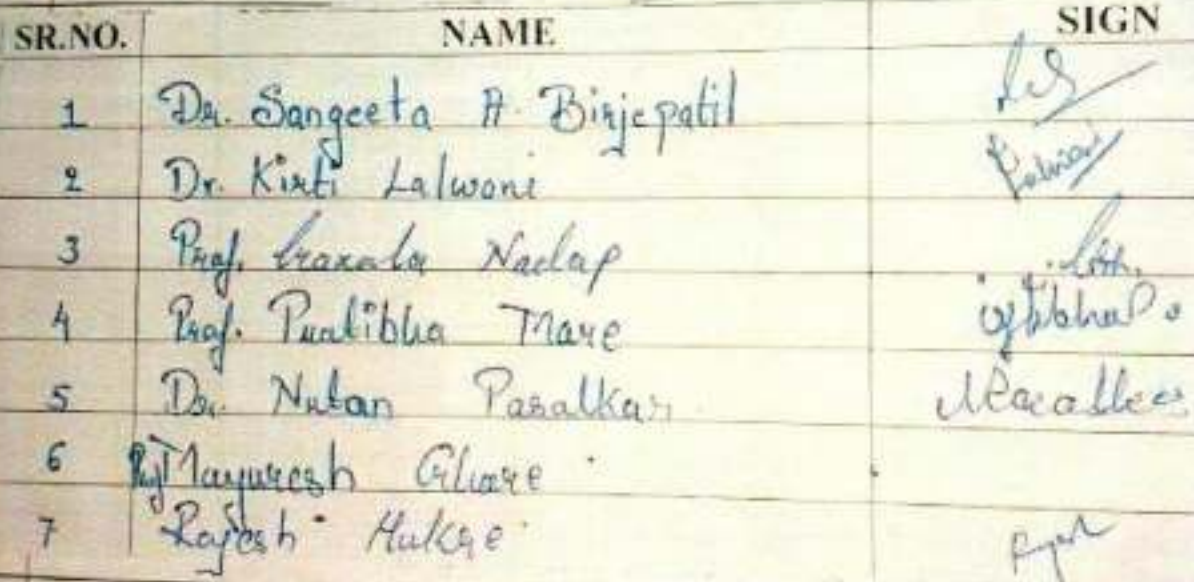 SR.NO. NAME SIGN
1 Dr. Sangeeta A. Birjepatil
2 Dr. Kirti Lalwani
3 Prof. Nadap
4 Prof. Pratibha Mare
5 Dr. Nutan Pasalkar
6 Prof Mayuresh Ghare
7 Rajesh Hukre Rajesh